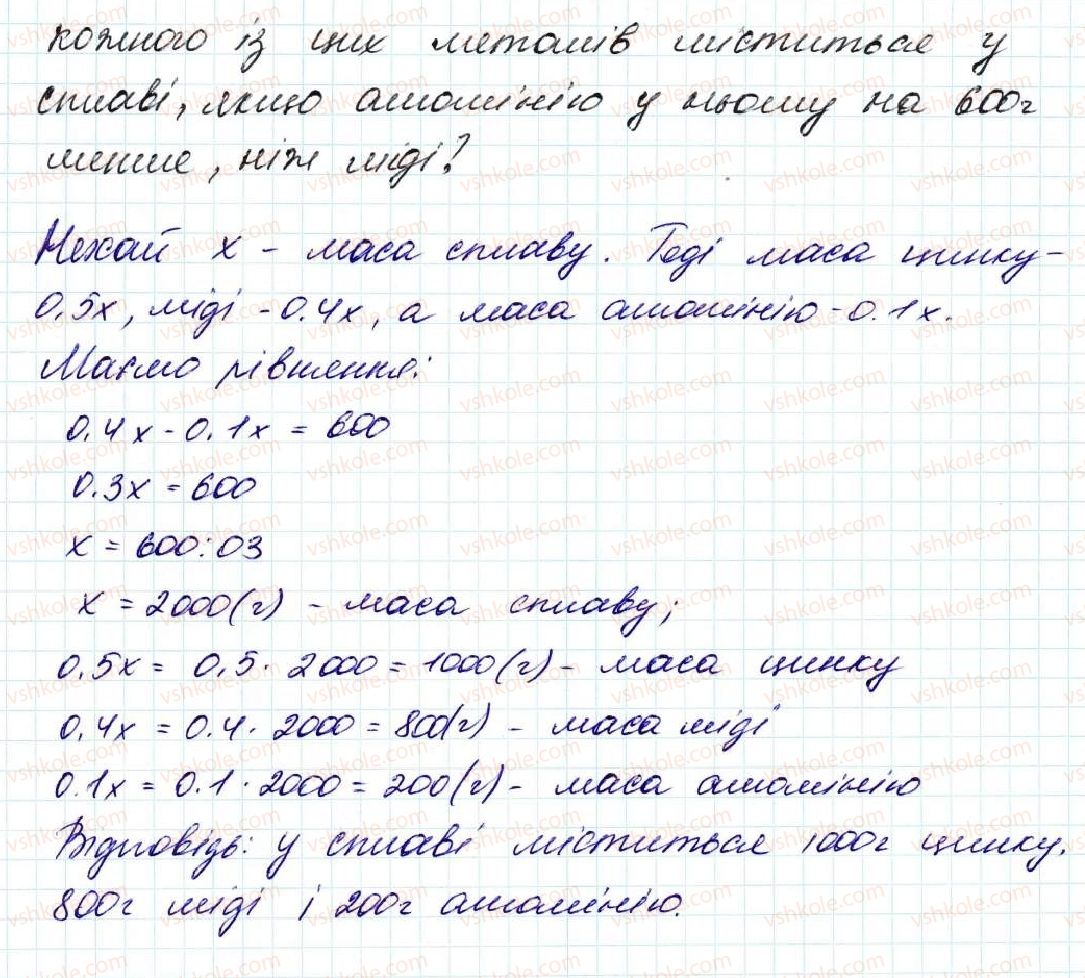 кожного із цих металів міститься у
сплаві, якщо алюмінію у ньому на 600г
менше, ніж міді?
Нехай х - маса сплаву. Тоді маса цинку-
0,5х, міді - 0.4х, а маса алюмінію - 0.1х.
Маємо рівняння:
0,4х - 0.1х = 600
0.3х = 600
х = 600:03
х = 2000(г) - маса сплаву;
0,5х = 0,5 · 2000 = 1000(г) - маса цинку
0,4х = 0.4 · 2000 = 800(г) - маса міді
0.1х = 0.1 · 2000 = 200(г) - маса алюмінію
Відповідь: у сплаві міститься 1000г цинку,
800г міді і 200г алюмінію.